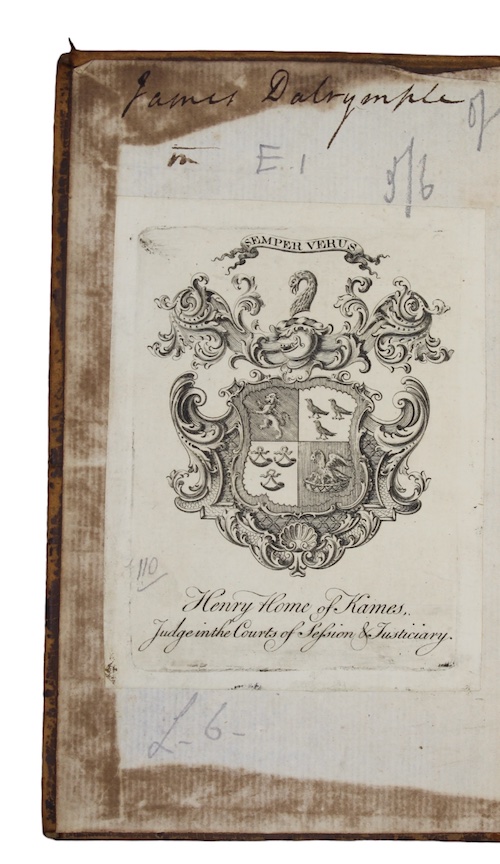 James Dalrymple
E. 1
5/6
SEMPER VERUS
110
Henry Home of Kames,
Judge in the Courts of Session & Justiciary.
L-6-